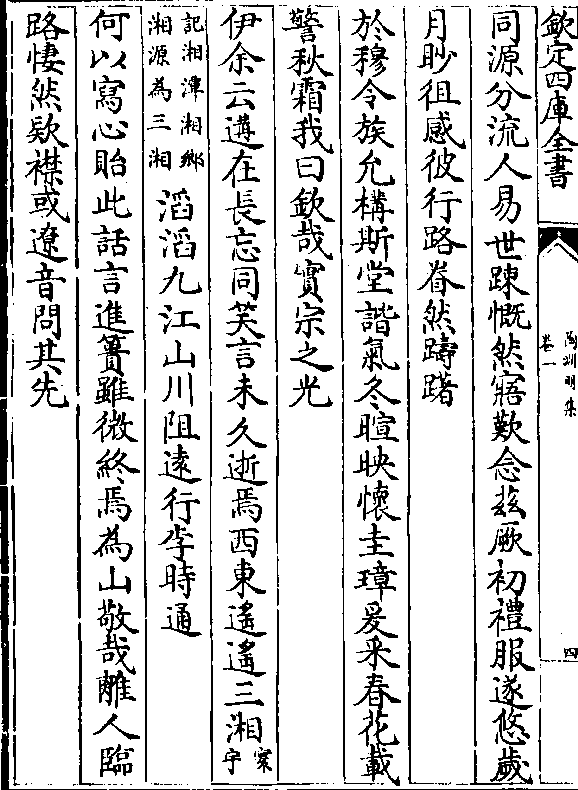 欽定四庫全書
陶淵明集
卷一
四
同源分流人易世踈慨然寤歎念茲厥初禮服遂悠歲
月眇徂感彼行路眷然躊躇
於穆令族允構斯堂諧氣冬暄映懷圭璋爰采春花載
警秋霜我曰欽哉實宗之光
伊余云遘在長忘同笑言未久逝焉西東遙遙三湘寰宇
記湘潭湘鄉湘源為三湘滔滔九江山川阻遠行李時通
何以寫心貽此話言進簣雖微終焉為山敬哉離人臨
路悽然欵襟或遼音問其先